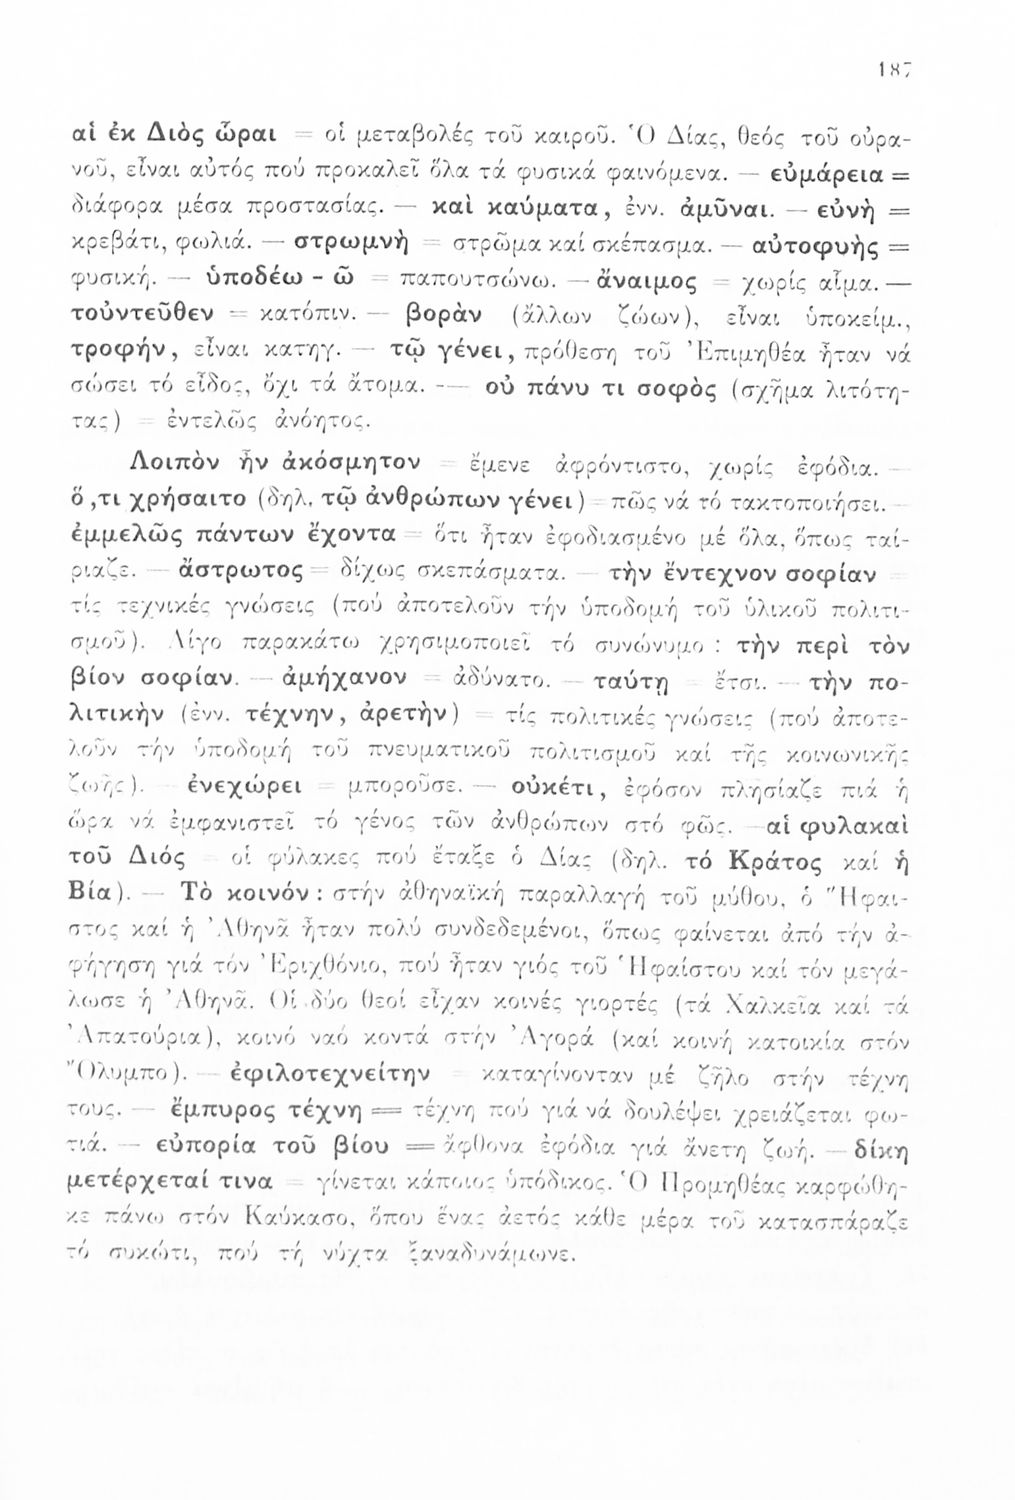 187
αἱ ἐκ Διὸς ὧραι = οἱ μεταβολές τοῦ καιροῦ. Ὁ Δίας, θεός τοῦ οὐρα-
νοῦ, εἶναι αὐτός πού προκαλεῖ ὅλα τά φυσικά φαινόμενα. — εὐμάρεια =
διάφορα μέσα προστασίας. — καὶ καύματα, ἐνν. ἀμῦναι. — εὐνὴ =
κρεβάτι, φωλιά. — στρωμνὴ = στρῶμα καί σκέπασμα. — αὐτοφυὴς =
φυσική. — ὑποδέω - ῶ = παπουτσώνω. — ἄναιμος = χωρίς αἷμα. —
τοὐντεῦθεν = κατόπιν. — βορὰν (ἄλλων ζώων), εἶναι ὑποκείμ.,
τροφήν, εἶναι κατηγ. — τῷ γένει, πρόθεση τοῦ Ἐπιμηθέα ἦταν νά
σώσει τό εἶδος, ὄχι τά ἄτομα. — οὐ πάνυ τι σοφὸς (σχῆμα λιτότη-
τας) = ἐντελῶς ἀνόητος.
Λοιπὸν ἦν ἀκόσμητον = ἔμενε ἀφρόντιστο, χωρίς ἐφόδια. —
ὅ,τι χρήσαιτο (δηλ. τῷ ἀνθρώπων γένει) = πῶς νά τό τακτοποιήσει. —
ἐμμελῶς πάντων ἔχοντα = ὅτι ἦταν ἐφοδιασμένο μέ ὅλα, ὅπως ταί-
ριαζε. — ἄστρωτος = δίχως σκεπάσματα. — τὴν ἔντεχνον σοφίαν =
τίς τεχνικές γνώσεις (πού ἀποτελοῦν τήν ὑποδομή τοῦ ὑλικοῦ πολιτι-
σμοῦ). Λίγο παρακάτω χρησιμοποιεῖ τό συνώνυμο : τὴν περὶ τὸν
βίον σοφίαν. — ἀμήχανον = ἀδύνατο. — ταύτῃ = ἔτσι. — τὴν πο-
λιτικὴν (ἐνν. τέχνην, ἀρετὴν) = τίς πολιτικές γνώσεις (πού ἀποτε-
λοῦν τήν ὑποδομή τοῦ πνευματικοῦ πολιτισμοῦ καί τῆς κοινωνικῆς
ζωῆς). — ἐνεχώρει = μποροῦσε. — οὐκέτι, ἐφόσον πλησίαζε πιά ἡ
ὥρα νά ἐμφανιστεῖ τό γένος τῶν ἀνθρώπων στό φῶς. — αἱ φυλακαὶ
τοῦ Διός = οἱ φύλακες πού ἔταξε ὁ Δίας (δηλ. τό Κράτος καί ἡ
Βία). — Τὸ κοινόν : στήν ἀθηναϊκή παραλλαγή τοῦ μύθου, ὁ Ἥφαι-
στος καί ἡ Ἀθηνᾶ ἦταν πολύ συνδεδεμένοι, ὅπως φαίνεται ἀπό τήν ἀ-
φήγηση γιά τόν Ἐριχθόνιο, πού ἦταν γιός τοῦ Ἡφαίστου καί τόν μεγά-
λωσε ἡ Ἀθηνᾶ. Οἱ δύο θεοί εἶχαν κοινές γιορτές (τά Χαλκεῖα καί τά
Ἀπατούρια), κοινό ναό κοντά στήν Ἀγορά (καί κοινή κατοικία στόν
Ὄλυμπο). — ἐφιλοτεχνείτην = καταγίνονταν μέ ζῆλο στήν τέχνη
τους. — ἔμπυρος τέχνη = τέχνη πού γιά νά δουλέψει χρειάζεται φω-
τιά. — εὐπορία τοῦ βίου = ἄφθονα ἐφόδια γιά ἄνετη ζωή. — δίκη
μετέρχεταί τινα = γίνεται κάποιος ὑπόδικος. Ὁ Προμηθέας καρφώθη-
κε πάνω στόν Καύκασο, ὅπου ἕνας ἀετός κάθε μέρα τοῦ κατασπάραζε
τό συκώτι, πού τή νύχτα ξαναδυνάμωνε.